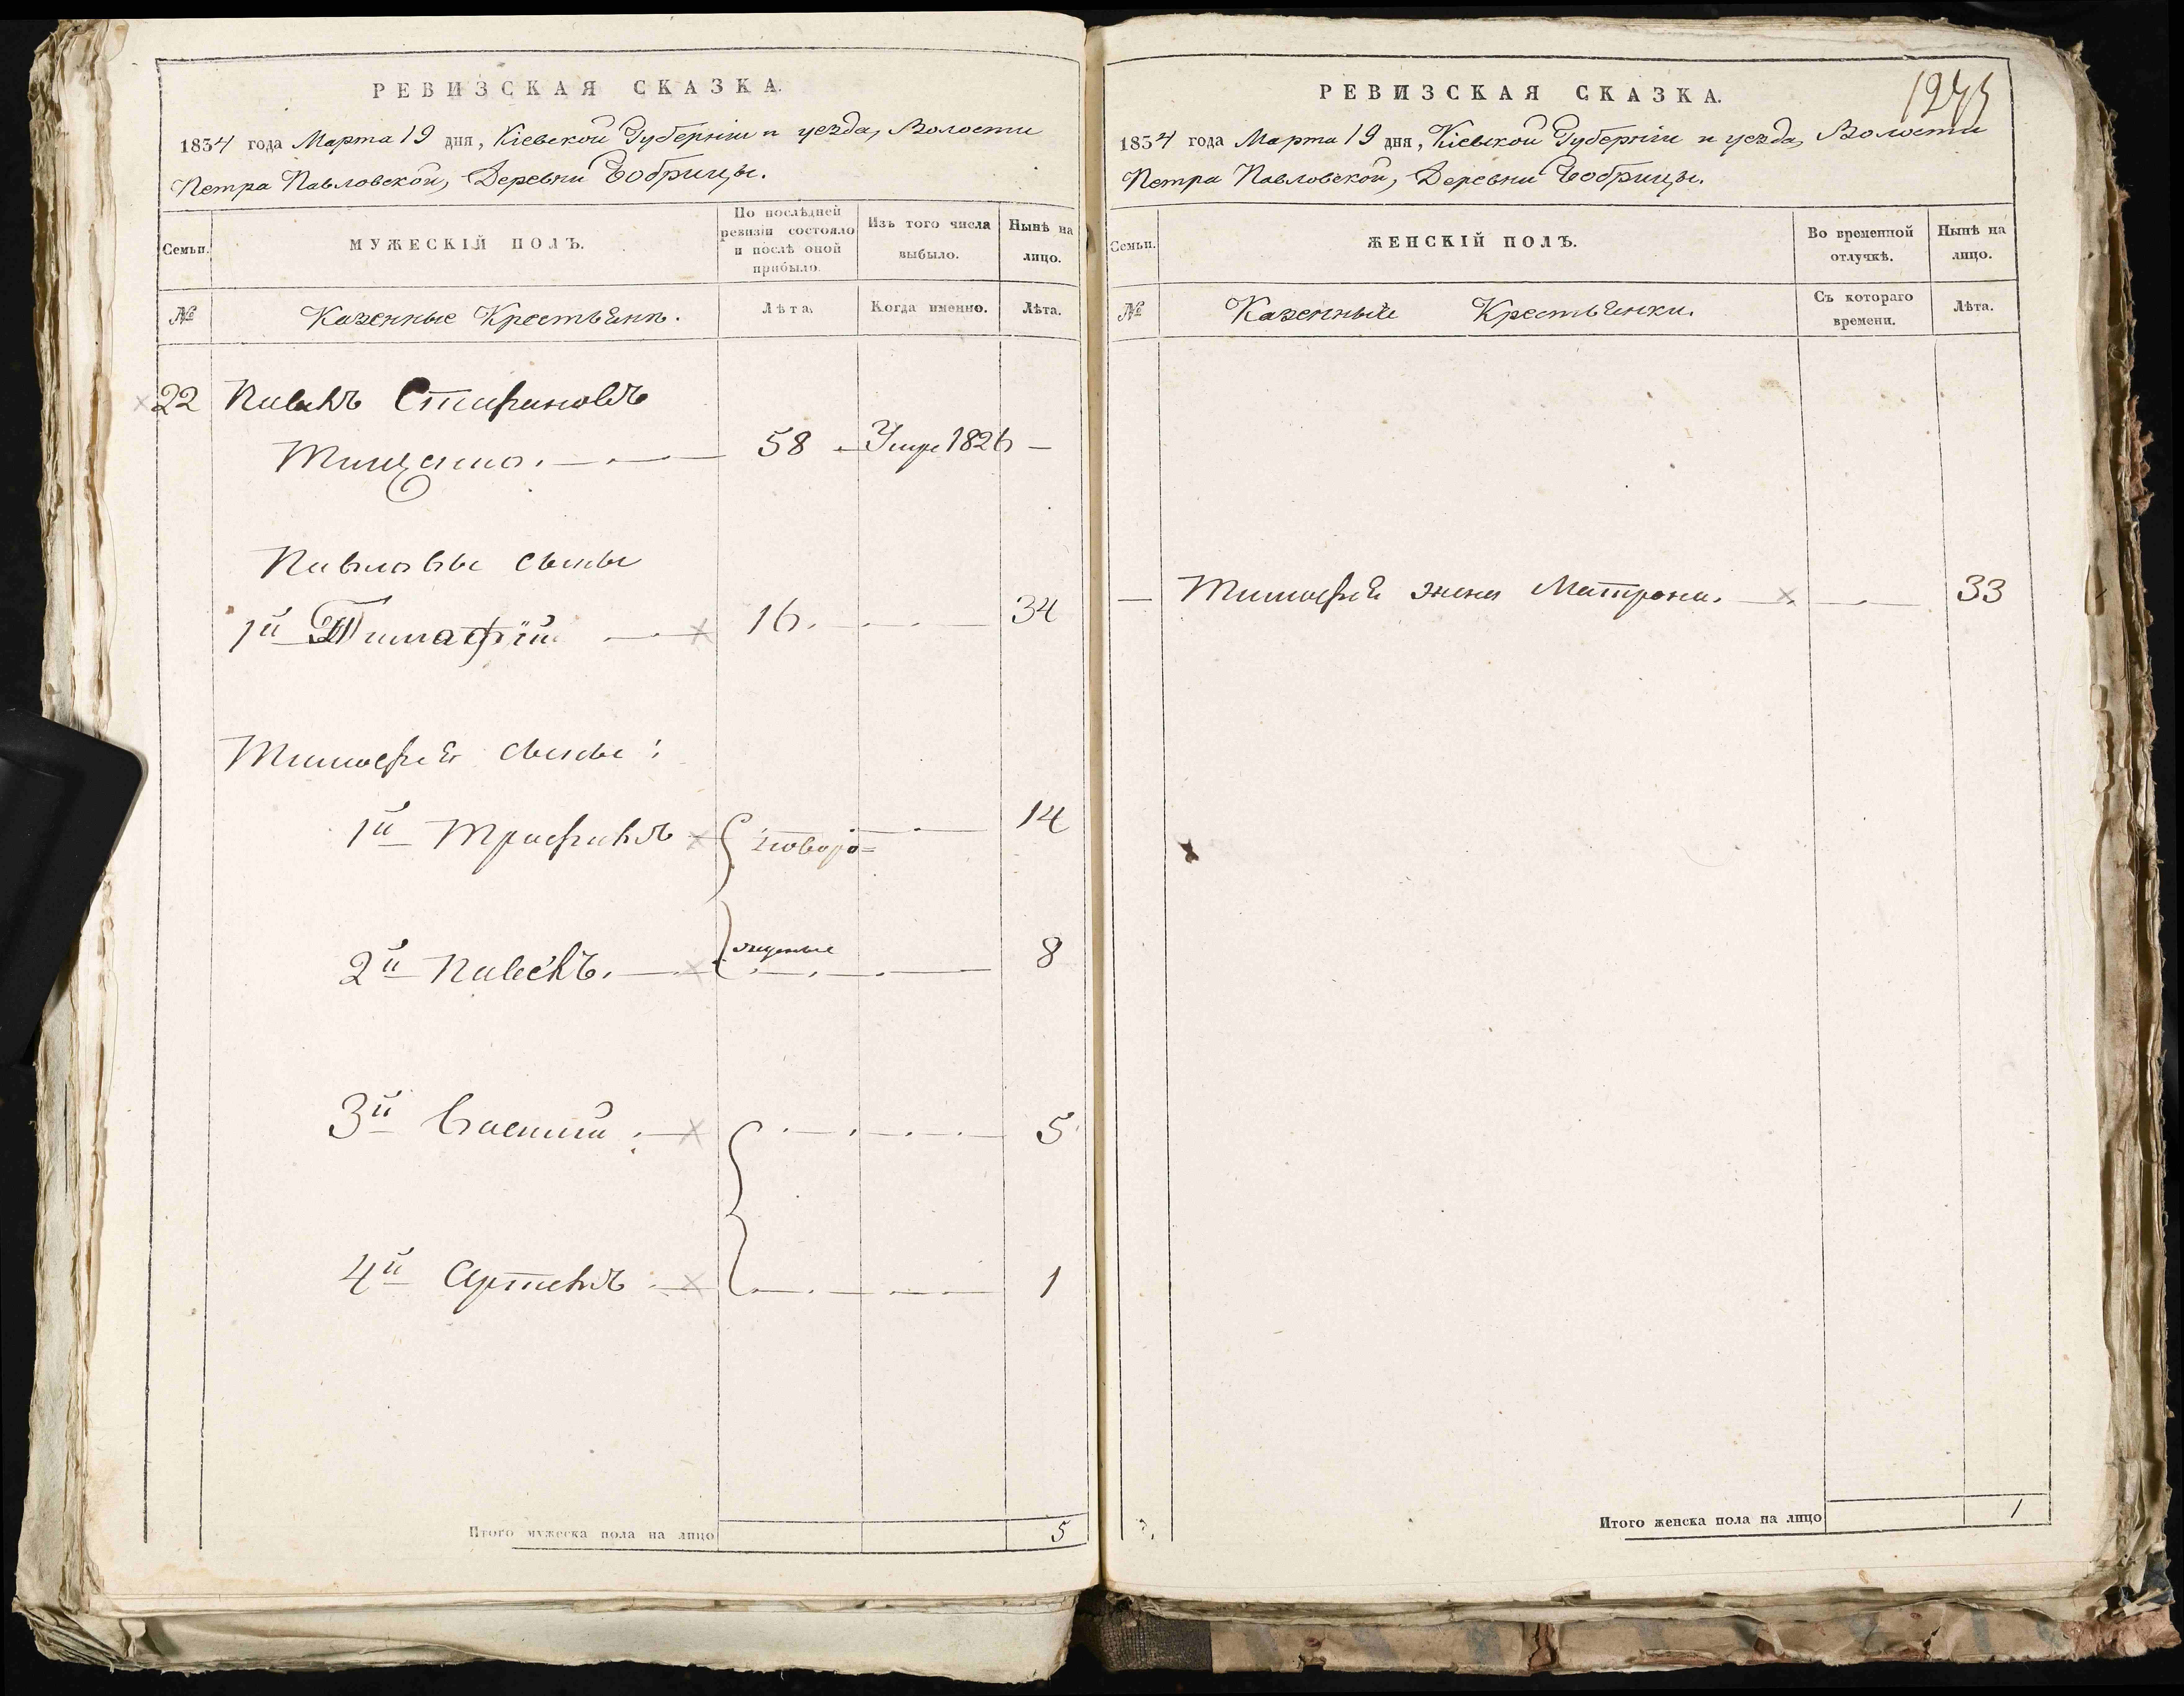 РЕВИЗСКАЯ СКАЗКА.
1834 года Марта 19 дня, Кіевской Губерніи и уезда, Волости
Петра Павловской, Деревни Бобрицы.
Семьи.
МУЖЕСКІЙ ПОЛЪ.
По послѣдней
ревизіи состояло
и послѣ оной
прибыло.
Изъ того числа
выбыло.
Нынѣ на
лицо.
№
Казенные Крестьяни.
Лѣта.
Когда именно.
Лѣта.
22 Павелъ Стефановъ
Тищенко. 58 Умре 1826
Павловы сыны
1й Тимофій 16. 34
Тимофея сыны:
1й Трофимъ новоро= 14
2й Павелъ. жденные 8
3й Василій. 5
4й Артемъ 1
Итого мужеска пола на лицо 5
1275
РЕВИЗСКАЯ СКАЗКА.
1834 года Марта 19 дня, Кіевской Губерніи и уезда, Волости
Петра Павловской, Деревни Бобрицы.
Семьи.
ЖЕНСКІЙ ПОЛЪ.
Во временной
отлучкѣ.
Нынѣ на
лицо.
№
Казенныѣ Крестьянки.
Съ котораго
времени.
Лѣта.
Тимофея жена Матрона. 33
Итого женска пола на лицо 1